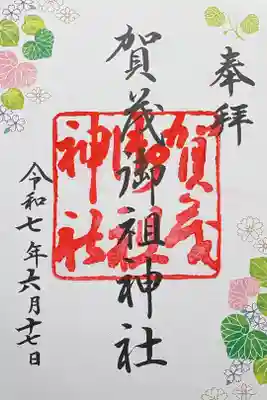 奉拝
賀茂御祖神社
令和七年六月十七日
賀茂
御祖
神社